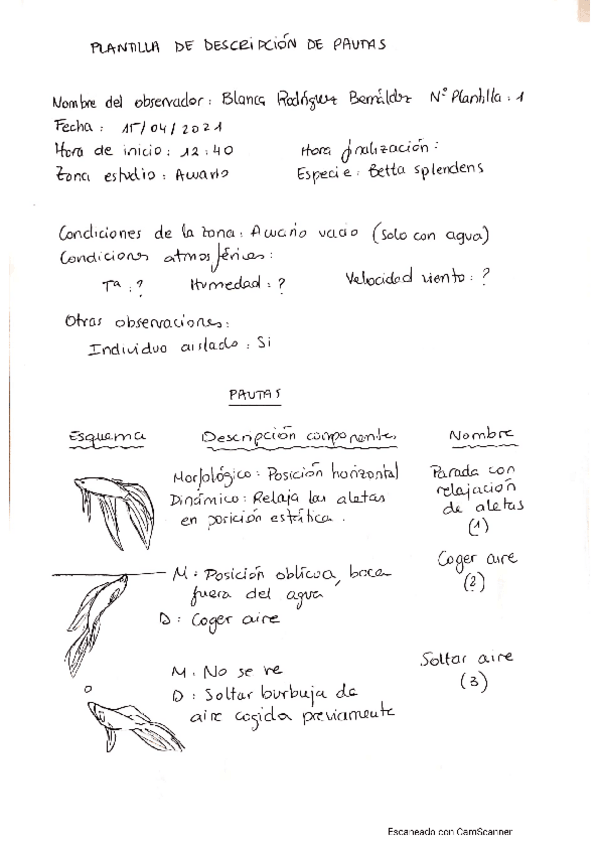 PLANTILLA DE DESCRIPCIÓN DE PAUTAS
Nombre del observador: Blanca Rodríguez Bernáldez Nº Plantilla: 1
Fecha: 15/04/2021
Hora de inicio: 12:40 Hora finalización:
Zona estudio: Acuario Especie: Betta splendens
Condiciones de la zona: Acuario vacio (Solo con agua)
Condiciones atmosféricas:
Tª: ? Humedad: ? Velocidad viento: ?
Otras observaciones:
Individuo aislado: Si
PAUTAS
Esquema Descripción componentes Nombre
Morfológico: Posición horizontal
Dinámico: Relaja las aletas
en posición estática.
Parada con
relajación
de aletas
(1)
M: Posición oblicua, boca
fuera del agua
D: Coger aire
Coger aire
(2)
M. No se ve
D: Soltar burbuja de
aire cogida previamente
Soltar aire
(3)
Escaneado con CamScanner